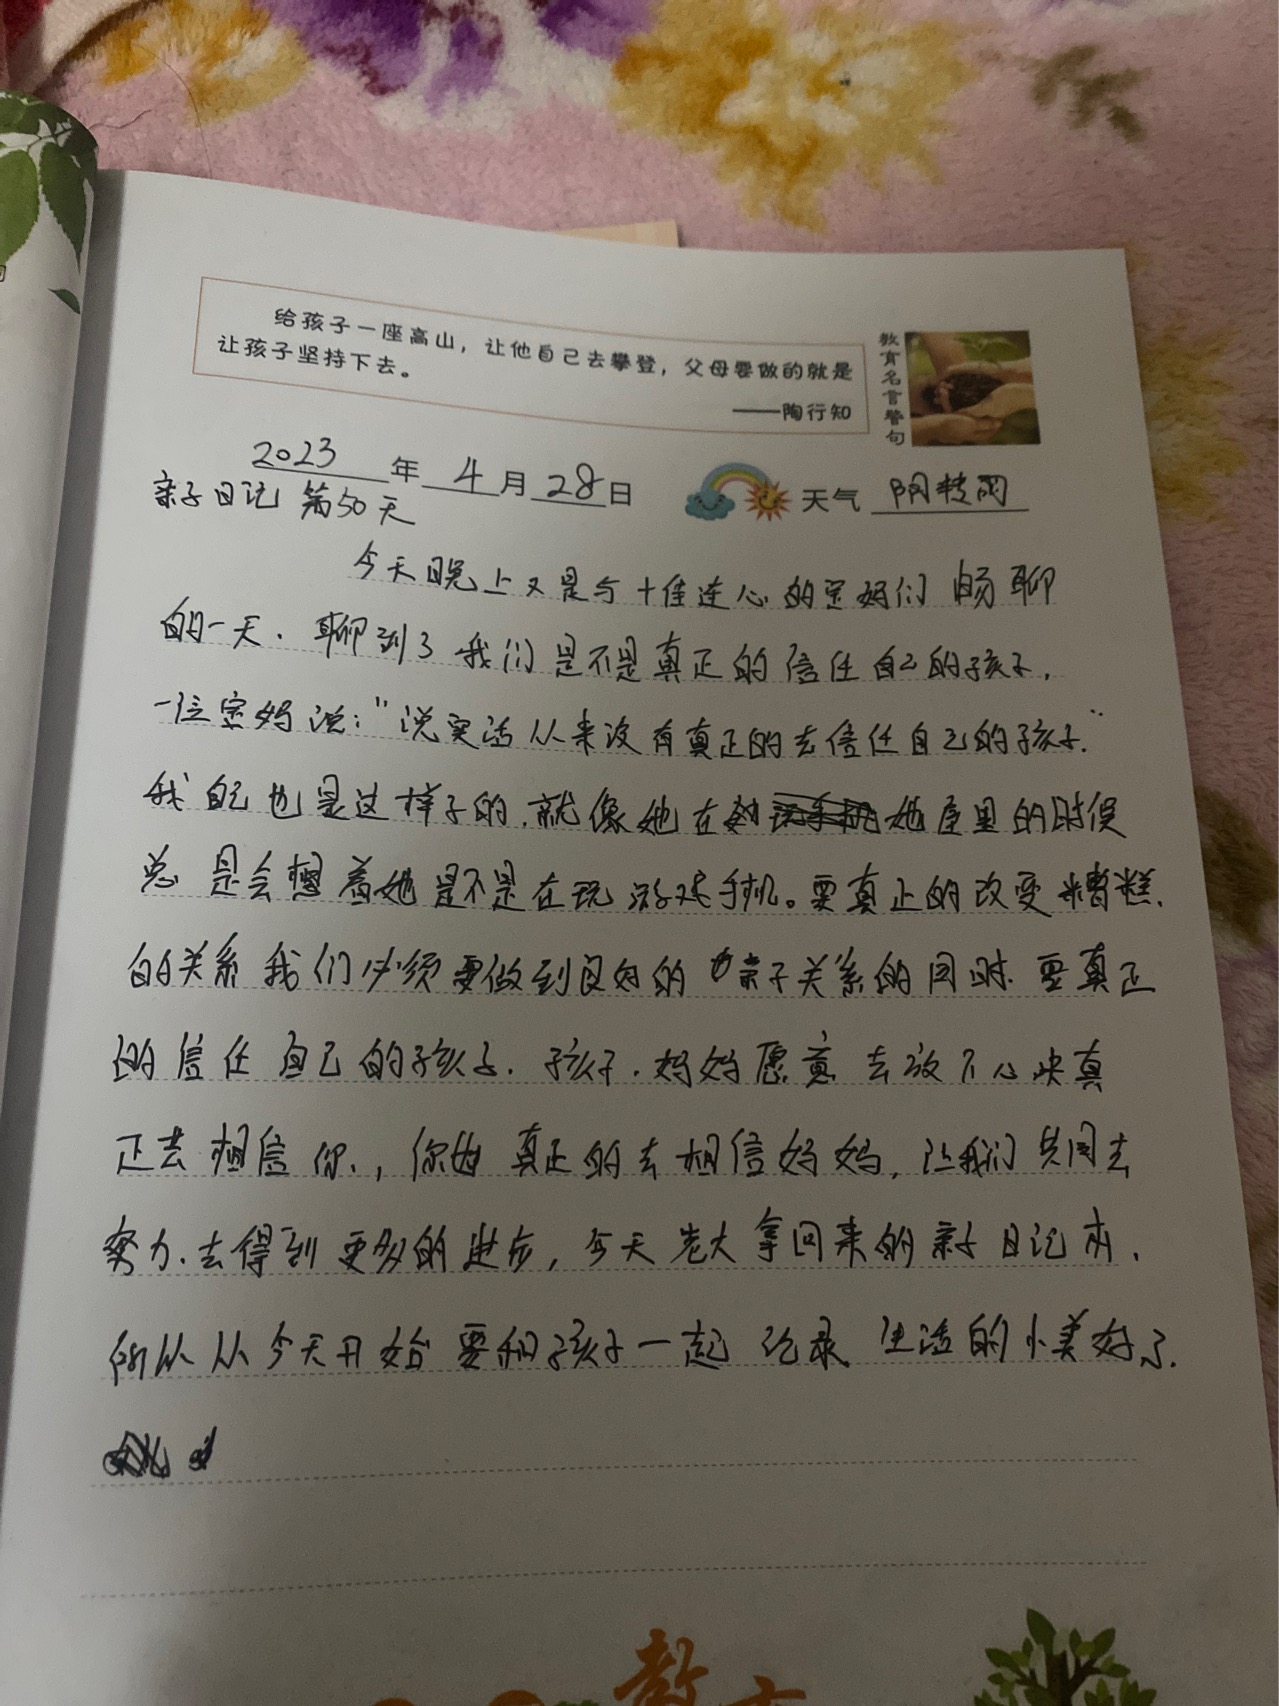 给孩子一座高山，让他自己去攀登，父母要做的就是
让孩子坚持下去。
——陶行知
教育名言警句
2023年4月28日
天气 阴转雨
亲子日记 第50天
今天晚上又是与十佳连心的宝妈们畅聊
的一天．聊到了我们是不是真正的信任自己的孩子，
一位宝妈说：“说实话从来没有真正的去信任自己的孩子．”
我自己也是这样子的．就像她在她屋里的时候
总是会想着她是不是在玩游戏手机。要真正的改变糟糕．
的关系我们必须要做到良好的亲子关系的同时．要真正
的信任自己的孩子．孩子．妈妈愿意去放下心来真
正去相信你．，你也真正的去相信妈妈，让我们共同去
努力．去得到更多的进步，今天老大拿回来的亲子日记本，
所以从今天开始要和孩子一起记录生活的小美好了．
教育